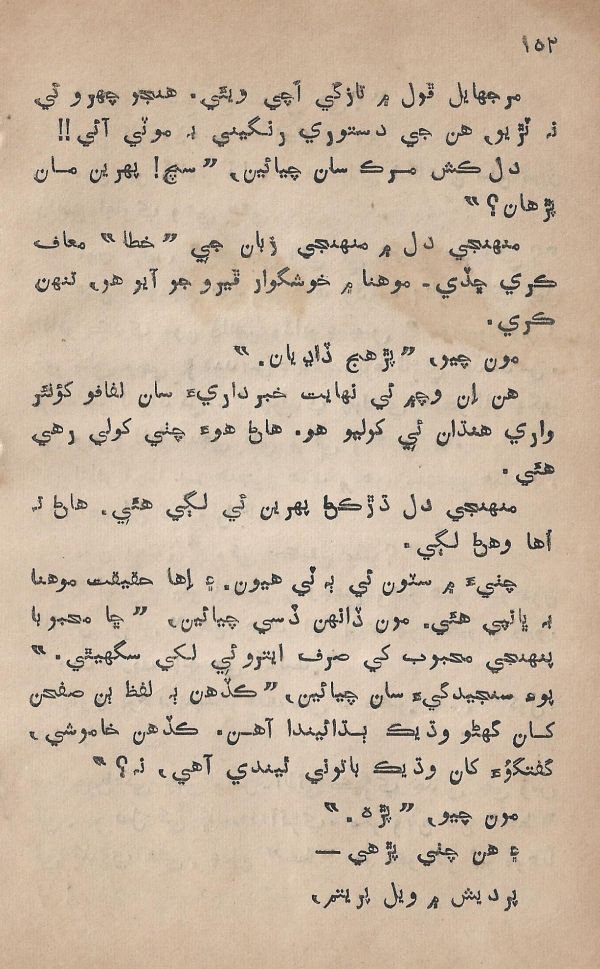 ۱۵۲
مرجهايل ڦول ۾ تازگي اچي ويئي. هنجو چهرو ئي
نہ ٽڙيو، هن جي دستوري رنگيني بہ موٽي آئي!!
دل ڪش مرڪ سان چيائين، ”سچ! پهرين مان
پڙهان؟“
منهنجي دل ۾ منهنجي زبان جي ”خطا“ معاف
ڪري ڇڏي۔ موهنا ۾ خوشگوار ڦيرو جو آيو هو، تنهن
ڪري.
مون چيو، ”پڙهج ڏاڍيان.“
هن اِن وچ۾ ئي نهايت خبرداريءَ سان لفافو کؤنئر
واري هنڌان ئي کوليو هو. هاڻ هوءَ چٺي کولي رهي
هئي.
منهنجي دل ڌڙڪڻ پهرين ئي لڳي هئي، هاڻ تہ
اُها وهڻ لڳي.
چٺيءَ ۾ سٽون ئي ٻہ ٽي هيون. ۽ اِها حقيقت موهنا
بہ ڀانپي هئي. مون ڏانهن ڏسي چيائين، ”ڇا محبوبا
پنهنجي محبوب کي صرف ايترو ئي لکي سگهيٿي.“
پوءِ سنجيدگيءَ سان چيائين، ”ڪڏهن ٻہ لفظ ٻن صفحن
کان گهڻو وڌيڪ ٻڌائيندا آهن. ڪڏهن خاموشي،
گفتگوُءَ کان وڌيڪ باتوني ٿيندي آهي، نہ؟“
مون چيو، ”پڙه.“
۽ هن چٺي پڙهي —
پرديش ۾ ويل پريتم،